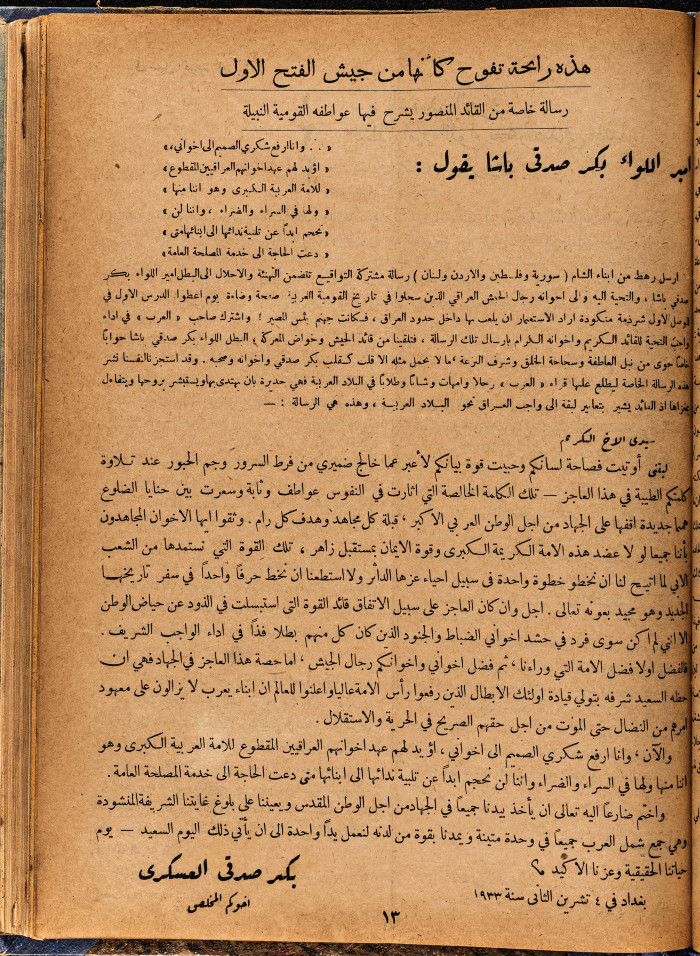 هذه رائحة تفوح كأنها من جيش الفتح الاول
رسالة خاصة من القائد المنصور يشرح فيها عواطفه القومية النبيلة
امير اللواء بكر صدقي باشا يقول :
« . . وانا ارفع شكري الصميم الى اخواني، »
« اؤيد لهم عهد اخوانهم العراقيين المقطوع »
« للامة العربية الكبرى وهو اننا منها »
« ولها في السراء والضراء ، واننا لن »
« نحجم ابداً عن تلبية ندائها الى ابنائها متى »
« دعت الحاجة الى خدمة المصلحة العامة »
ارسل رهط من ابناء الشام ( سورية وفلسطين والاردن ولبنان ) رسالة مشتركة التواقيع تتضمن التهنئة والاجلال الى البطل امير اللواء بكر
صدقي باشا ، والتحية اليه والى اخوانه رجال الجيش العراقي الذين سجلوا في تاريخ القومية العربية صفحة وضاءة يوم اعطوا الدرس الاول في
الاول لشرذمة منكودة اراد الاستعمار ان يلعب بها داخل حدود العراق ، فكانت جهنم بئس المصير ! واشترك صاحب « العرب » في اداء
واجب التحية للقائد الكريم واخوانه الكرام بارسال تلك الرسالة ، فتلقينا من قائد الجيش وخواض المعركة البطل اللواء بكر صدقي باشا جواباً
خاصاً حوى من نبل العاطفة وسجاحة الخلق وشرف النزعة ، ما لا يحمل مثله الا قلب كقلب بكر صدقي واخوانه وصحبه . وقد استجزنا لنفسنا نشر
هذه الرسالة الخاصة ليطلع عليها قراء « العرب » رجالا وامهات وشباناً وطلاباً في البلاد العربية فهي جديرة بان يهتدى بها ويستبشر بروحها ويتفاءل
بمغزاها اذ القائد يشير بتعابير لبقة الى واجب العراق نحو البلاد العربية ، وهذه هي الرسالة : —
سيدي الاخ المكرم
ليتني أوتيت فصاحة لسانكم وحبيت قوة بيانكم لأعبر عما خالج ضميري من فرط السرور وجم الحبور عند تلاوة
كلمتكم الطيبة في هذا العاجز — تلك الكلمة الخالصة التي اثارت في النفوس عواطف وثابة وسعرت بين حنايا الضلوع
همما جديدة اقفها على الجهاد من اجل الوطن العربي الاكبر ، قبلة كل مجاهد وهدف كل رام . وثقوا ايها الاخوان المجاهدون
بأننا جميعا لو لا عضد هذه الامة الكريمة الكبرى وقوة الايمان بمستقبل زاهر ، تلك القوة التي نستمدها من الشعب
الابي لما اتيح لنا ان نخطو خطوة واحدة في سبيل احياء عزها الداثر ولا استطعنا ان نخط حرفاً واحداً في سفر تاريخها
الجديد وهو مجيد بعونه تعالى . اجل وان كان العاجز على سبيل الاتفاق قائد القوة التي استبسلت في الذود عن حياض الوطن
الا انني لم اكن سوى فرد في حشد اخواني الضباط والجنود الذين كان كل منهم بطلا فذاً في اداء الواجب الشريف .
فالفضل اولا فضل الامة التي وراءنا ، ثم فضل اخواني واخوانكم رجال الجيش ، اما حصة هذا العاجز في الجهاد فهي ان
حظه السعيد شرفه بتولي قيادة اولئك الابطال الذين رفعوا رأس الامة عالياً واعلنوا للعالم ان ابناء يعرب لا يزالون على معهود
امرهم من النضال حتى الموت من اجل حقهم الصريح في الحرية والاستقلال .
والآن ، وانا ارفع شكري الصميم الى اخواني ، اؤيد لهم عهد اخوانهم العراقيين المقطوع للامة العربية الكبرى وهو
اننا منها ولها في السراء والضراء واننا لن نحجم ابداً عن تلبية ندائها الى ابنائها متى دعت الحاجة الى خدمة المصلحة العامة .
واختم ضارعاً اليه تعالى ان يأخذ بيدنا جميعاً في الجهاد من اجل الوطن المقدس ويعيننا على بلوغ غايتنا الشريفة المنشودة
وهي جمع شمل العرب جميعاً في وحدة متينة ويمدنا بقوة من لدنه لنعمل يداً واحدة الى ان يأتي ذلك اليوم السعيد — يوم
حياتنا الحقيقية وعزنا الأكيد
بغداد في ٤ تشرين الثاني سنة ١٩٣٣
بكر صدقي العسكري
اخوكم المخلص
١٣